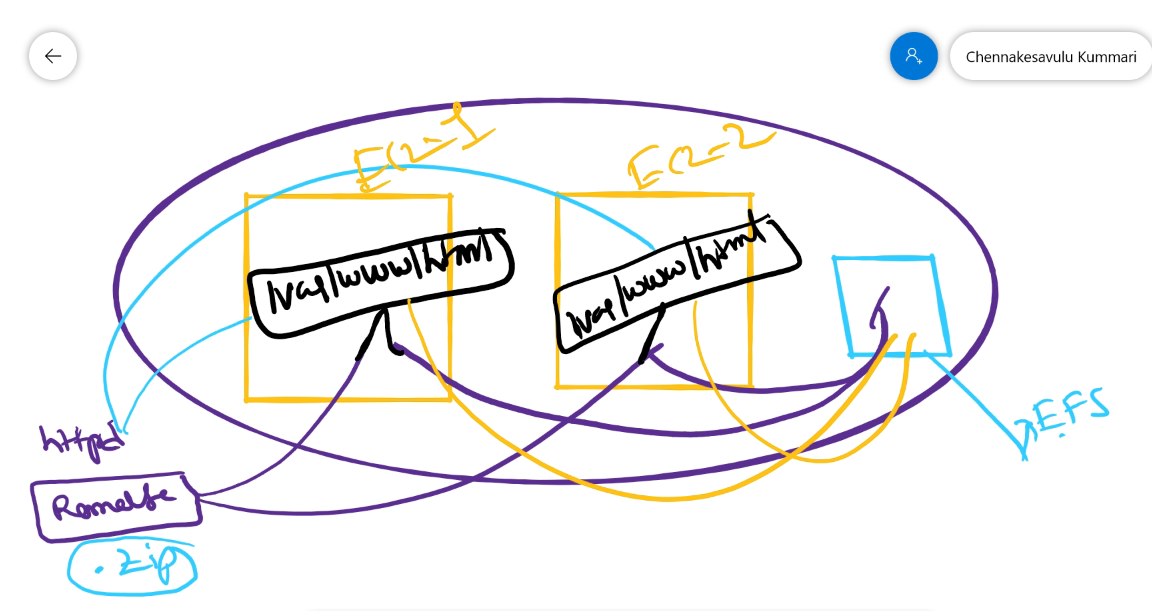 Chennakesavulu Kummari
EC2-1
EC2-2
/var/www/html
/var/www/html
httpd
EFS
.zip